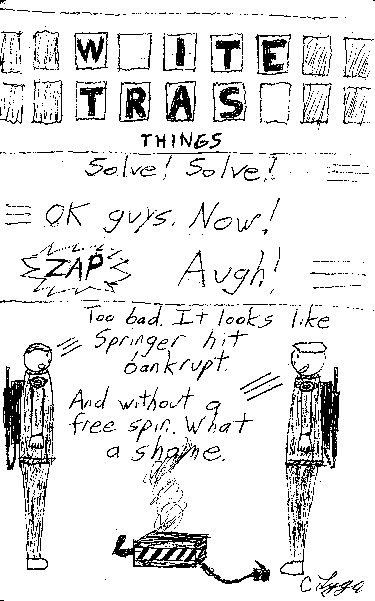 W ITE
TRAS
THINGS
Solve! Solve!
OK guys. Now!
ZAP Augh!
Too bad. It looks like
Springer hit
bankrupt.
And without a
free spin. What
a shame.
C Lyga